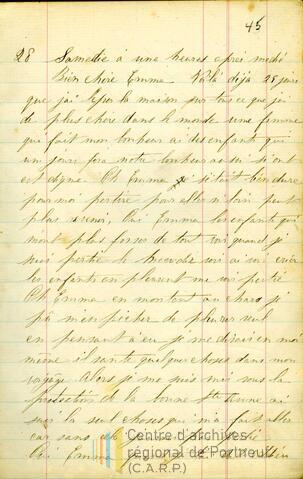 45
28 Samedie à une heures après midi
Bien chère Emme Voilà déja 25 jours
que jai la maison sur tous ce que jai
de plus chers dans le monde une femme
qui fait mon bonheur ai des enfants qui
un jours fera notre bonheur aussi si ont
est digne. Oh Emme si était bien dure
pour moi partire pour aller si loin peut
plus revenir, Oui Emme les enfants qui
mont plus forser de tout quand je
suis partie de les enfants en pleurant me voir partire
Oh Emme en montent au chars je
pas mes pècher de pleurer seul
en pensant à eu je me disais en moi
même il sante quelque choses dans mon
voyage Alors je me suis mis sous la
protection de la bonne Ste Anne ai
sui la seul choses qui ma fait aller
car sans
Oui Emme
Centre d'archives
régional de Portneuf
(C.A.R.P.)